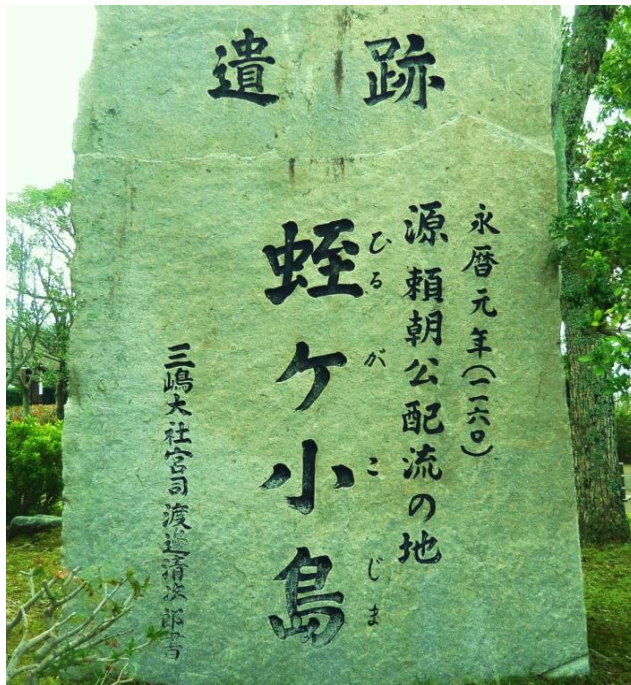 遺跡
永暦元年(一一六〇)
源頼朝公配流の地
ひるがこじま
蛭ケ小島
三嶋大社宮司 渡邉清次郎書